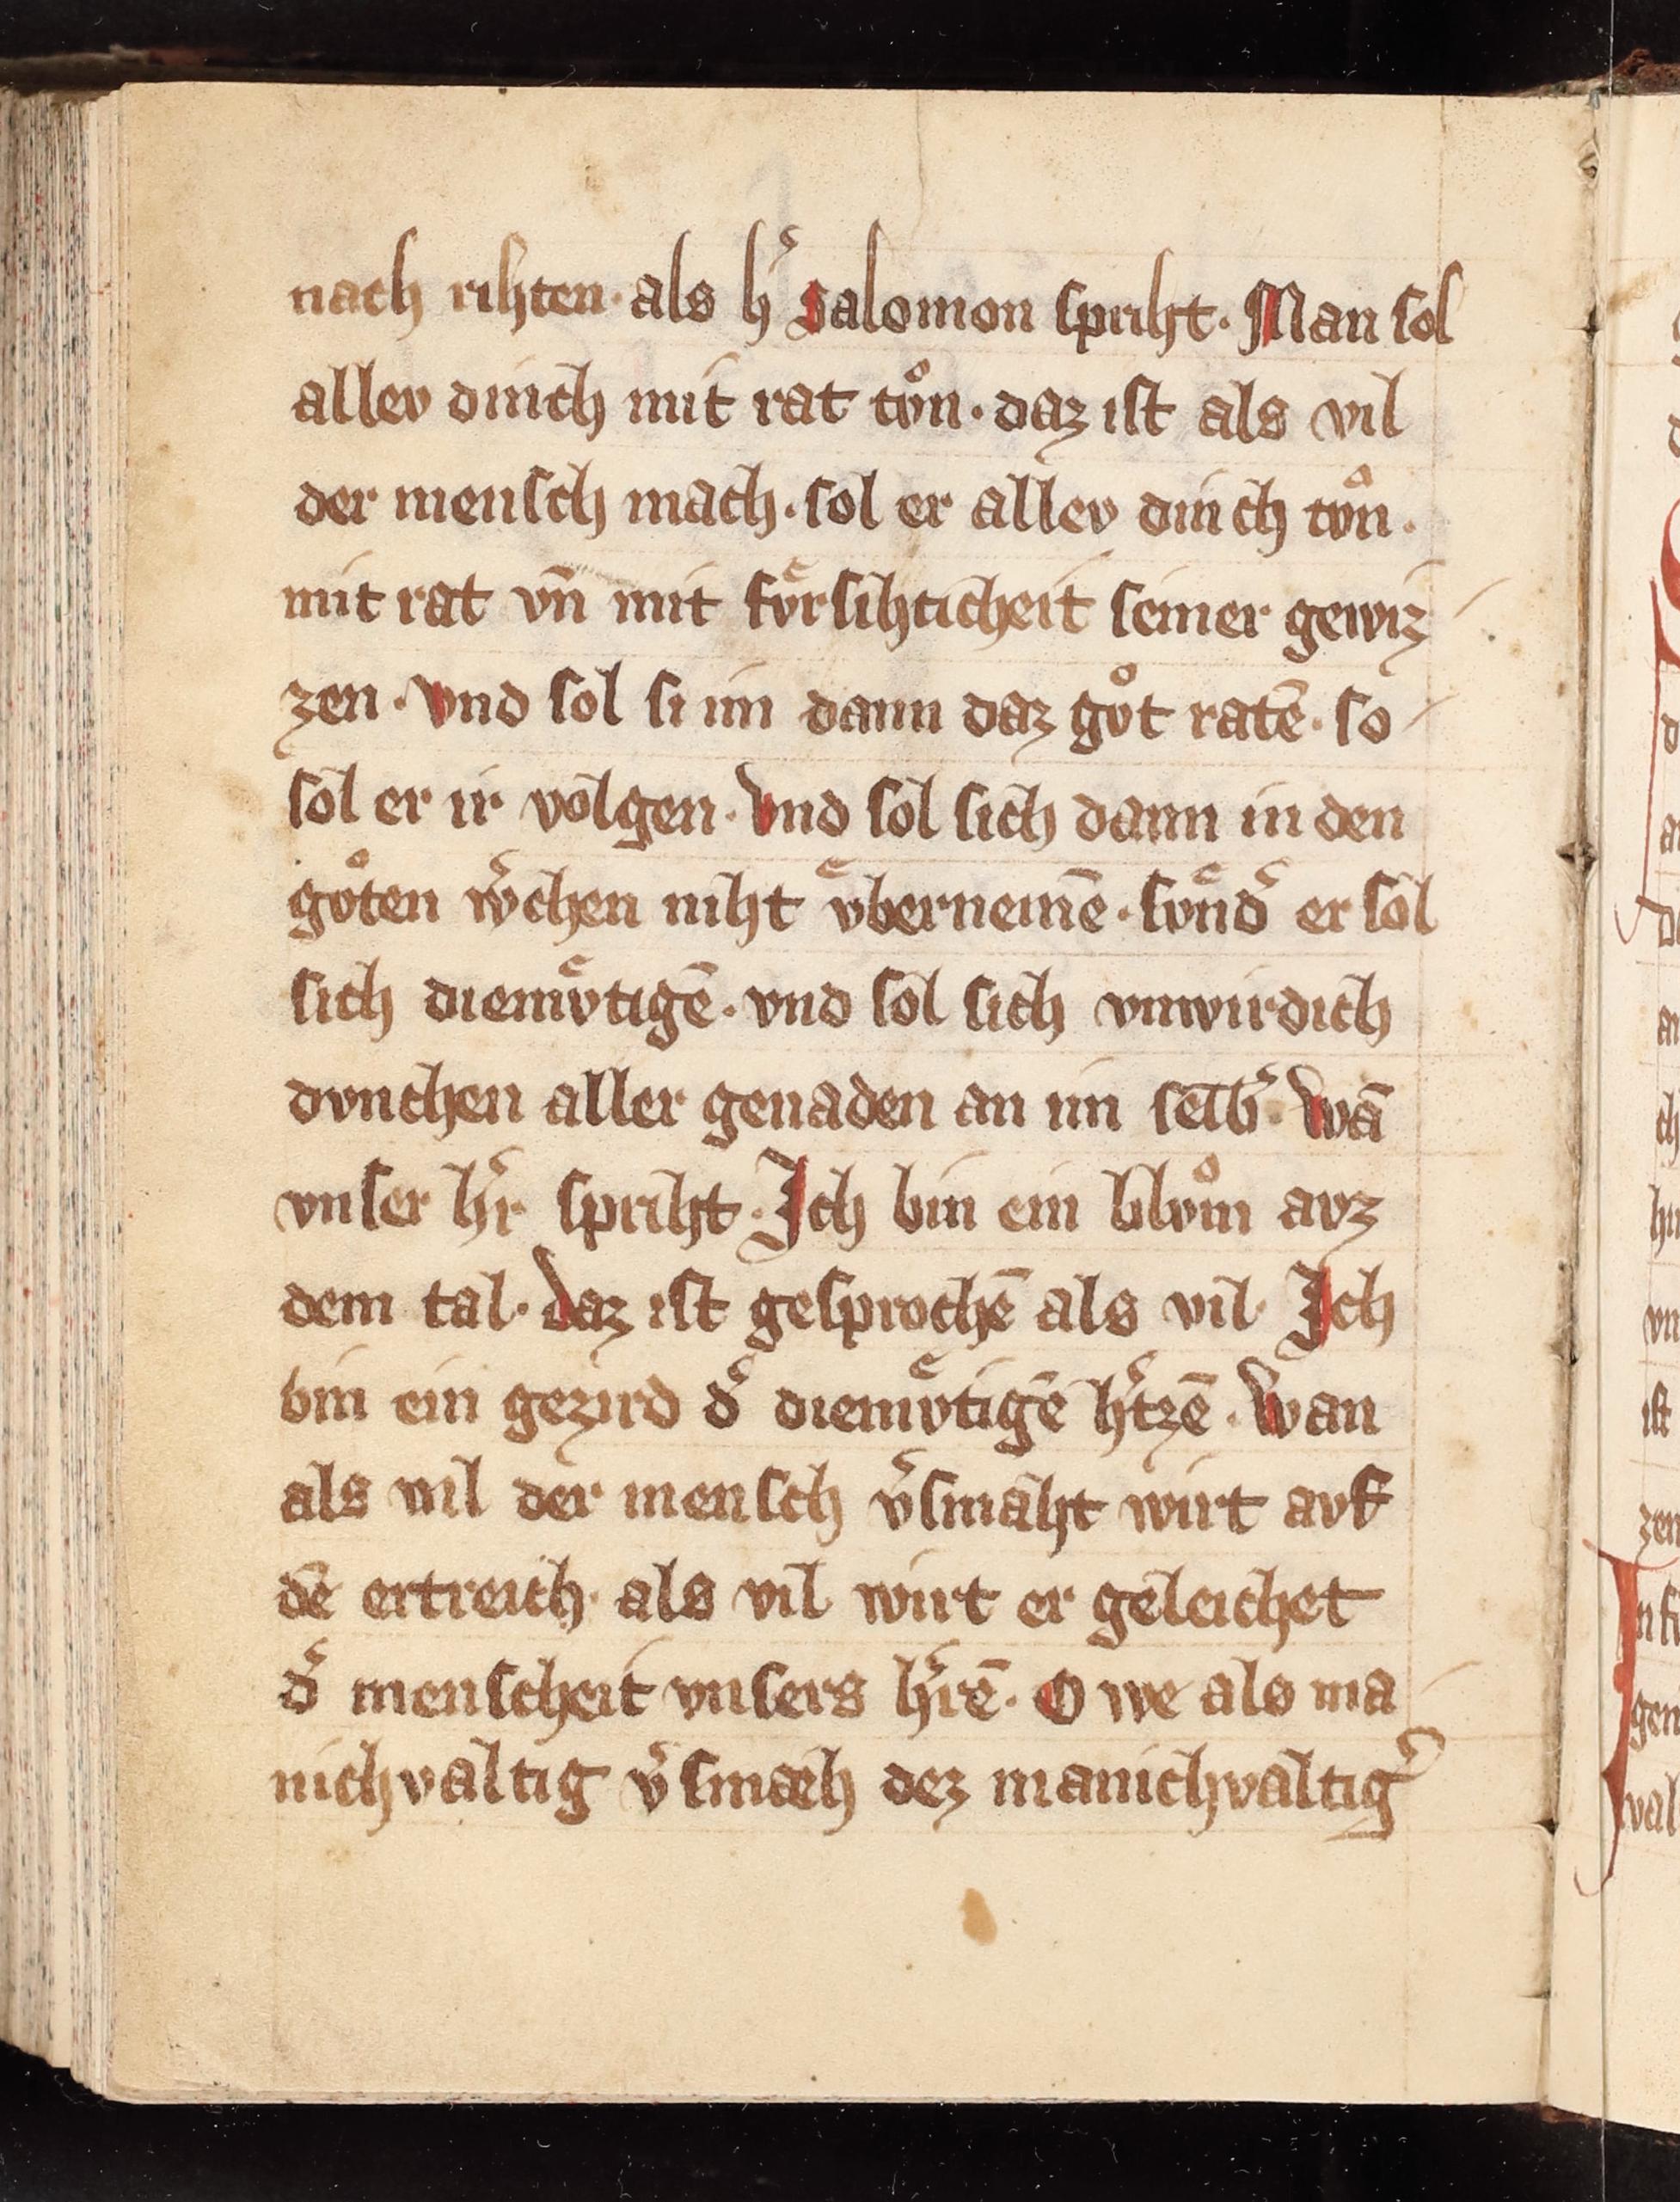 nach rihten · als h͛ Salomon spriht · Man sol
allev dinch mit rat tvͦn · daz ist als vil
der mensch mach · sol er allev dinch tvͦn ·
mit rat vn̄ mit fvͤrsihticheit seiner gewiz
zen · Vnd sol si im dann daz gvͦt ratē · so
sol er ir volgen · Vnd sol sich dann in den
gvͦten w͛chen niht vͤbernemē · svͤnd͛ er sol
sich diemvͤtigē · vnd sol sich vnwirdich
dvnchen aller genaden an im selb͛ · Wā
vnser h͛r spriht · Ich bin ein blvͦm avz
dem tal · Daz ist gesprochē als vil · Ich
bin ein gezird d͛ diemvͤtigē h͛tzē · Wan
als vil der mensch v͛smaht wirt avf
dē ertreich · als vil wirt er geleichet
d͛ menscheit vnsers h͛rē · O we als ma
nichvaltig v͛smæh dez manichvaltig͛